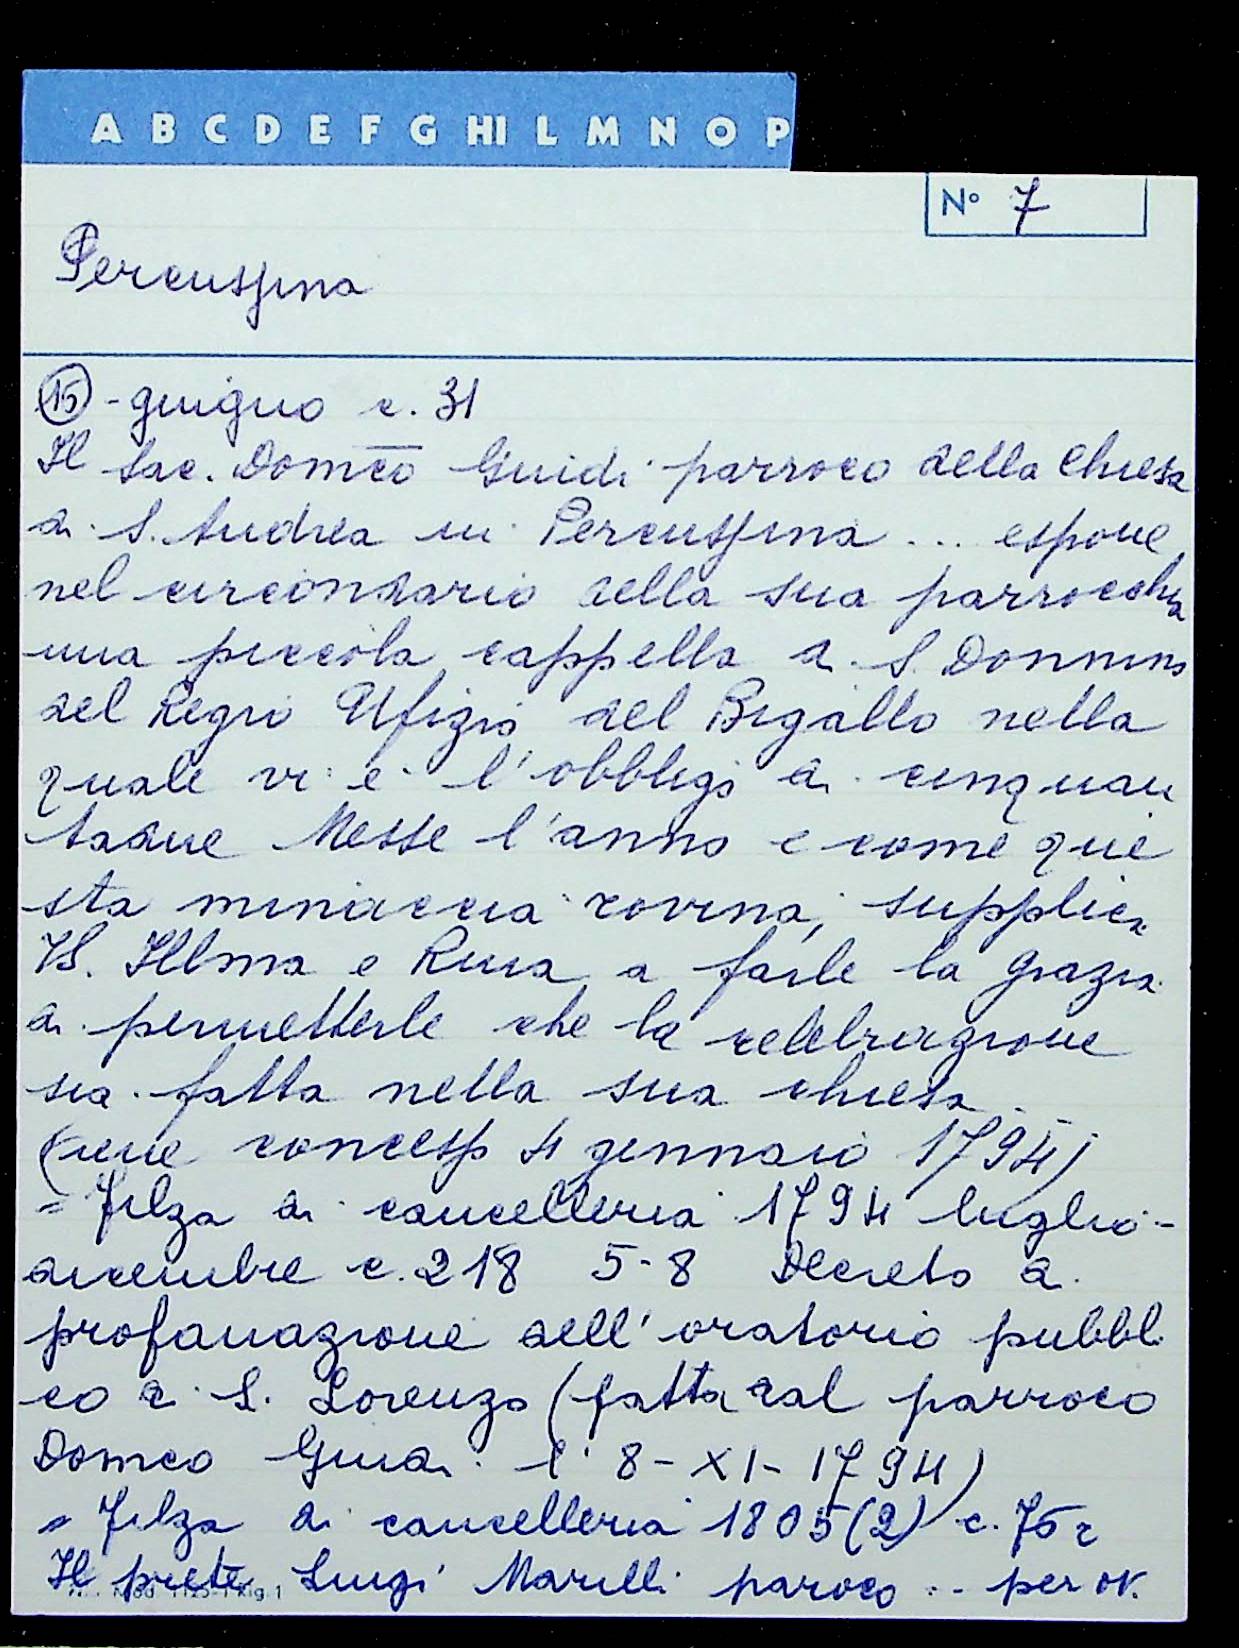 A B C D E F G HI L M N O P
N° 7
Percussina
15 - giugno c. 31
Il Sac. Domco Guidi parroco della Chiesa
di S. Andrea in Percussina ... espone
nel circondario della sua parrocchia
una piccola cappella di S. Donnino
del Regio Ufizio del Bigallo nella
quale vi è l'obbligo di cinquan
tadue Messe l'anno e come que
sta minaccia rovina, supplica
VS. Illma e Rma a farle la grazia
di permetterle che la celebrazione
sia fatta nella sua chiesa
(viene concesso 4 gennaio 1794)
= Filza di cancelleria 1794 luglio-
dicembre c. 218 5-8 Decreto di
profanazione dell'oratorio pubbli
co di S. Lorenzo (fatta dal parroco
Domco Guidi l'8-XI-1794)
= Filza di cancelleria 1805(2) c. 75
Il prete Luigi Marilli paroco .. per ov.